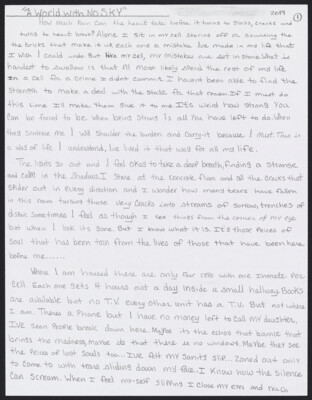 "A World with NO SKY" 2019 1
How much Pain can the heart take before it turns to Sticks, cracks and
turns to heart burn? Alone I sit in my cell stories off or counting the
the bricks that make it up each one a mistake I've made in my life that
I wish I could undo but like my cell, my mistakes are set in stone. What is
hardest to swallow is that I'll most likely spend the rest of my life
In a cell for a crime I didn't commit. I haven't been able to find the
strength to make a deal with the state for that reason. If I must do
this time I'll make them give it to me. It's weird how strong You
can be forced to be when being strong is all You have left to do. When
they sentence me I will shoulder the burden and carry it because I must. This is
a way of life I understand, I've lived it that way for all my life.
The lights go out and I feel okay to take a deep breath, finding a strange
and calm in the shadows. I stare at the concrete floor and all the cracks that
spider out in every direction and I wonder how many tears have fallen
in this room turning those very cracks into streams of sorrow, trenches of
despair. Sometimes I feel as though I see things from the corners of my eye
but when I look its gone. But I know what it is. It's those Peices of
soul that has been torn from the lives of those that have been here
before me......
Where I am housed there are only four cells with one Inmate Per
Cell. Each one gets 4 hours out a day inside a small hallway. Books
are available but no T.V. every other unit has a T.V. But not where
I am. Theres a Phone but I have no money left to call my daughter,
I'VE seen People break down here. Maybe its the echos that bounce that
brings the madness, maybe its that there is no windows. Maybe they see
the Peices of lost souls too... I've felt my sanity slip... Zoned out only
to come to with tears sliding down my face. I know how the silence
can scream. When I feel my-self slipping I close my eyes and reach